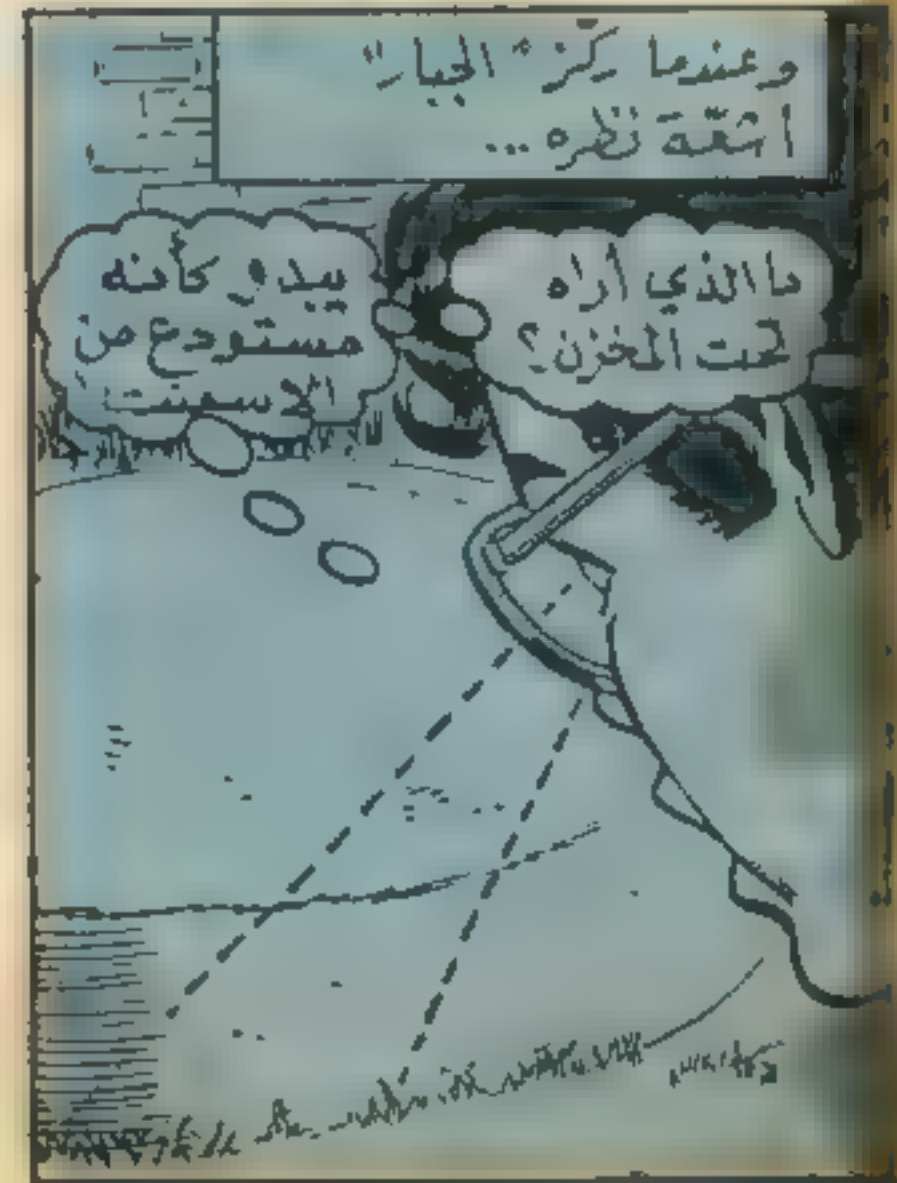 وعندما ركّز "الجبار"
اشعّة نظره...
ما الذي أراه
تحت المخزن؟
يبدو كأنه
مستودع من
الاسمنت!